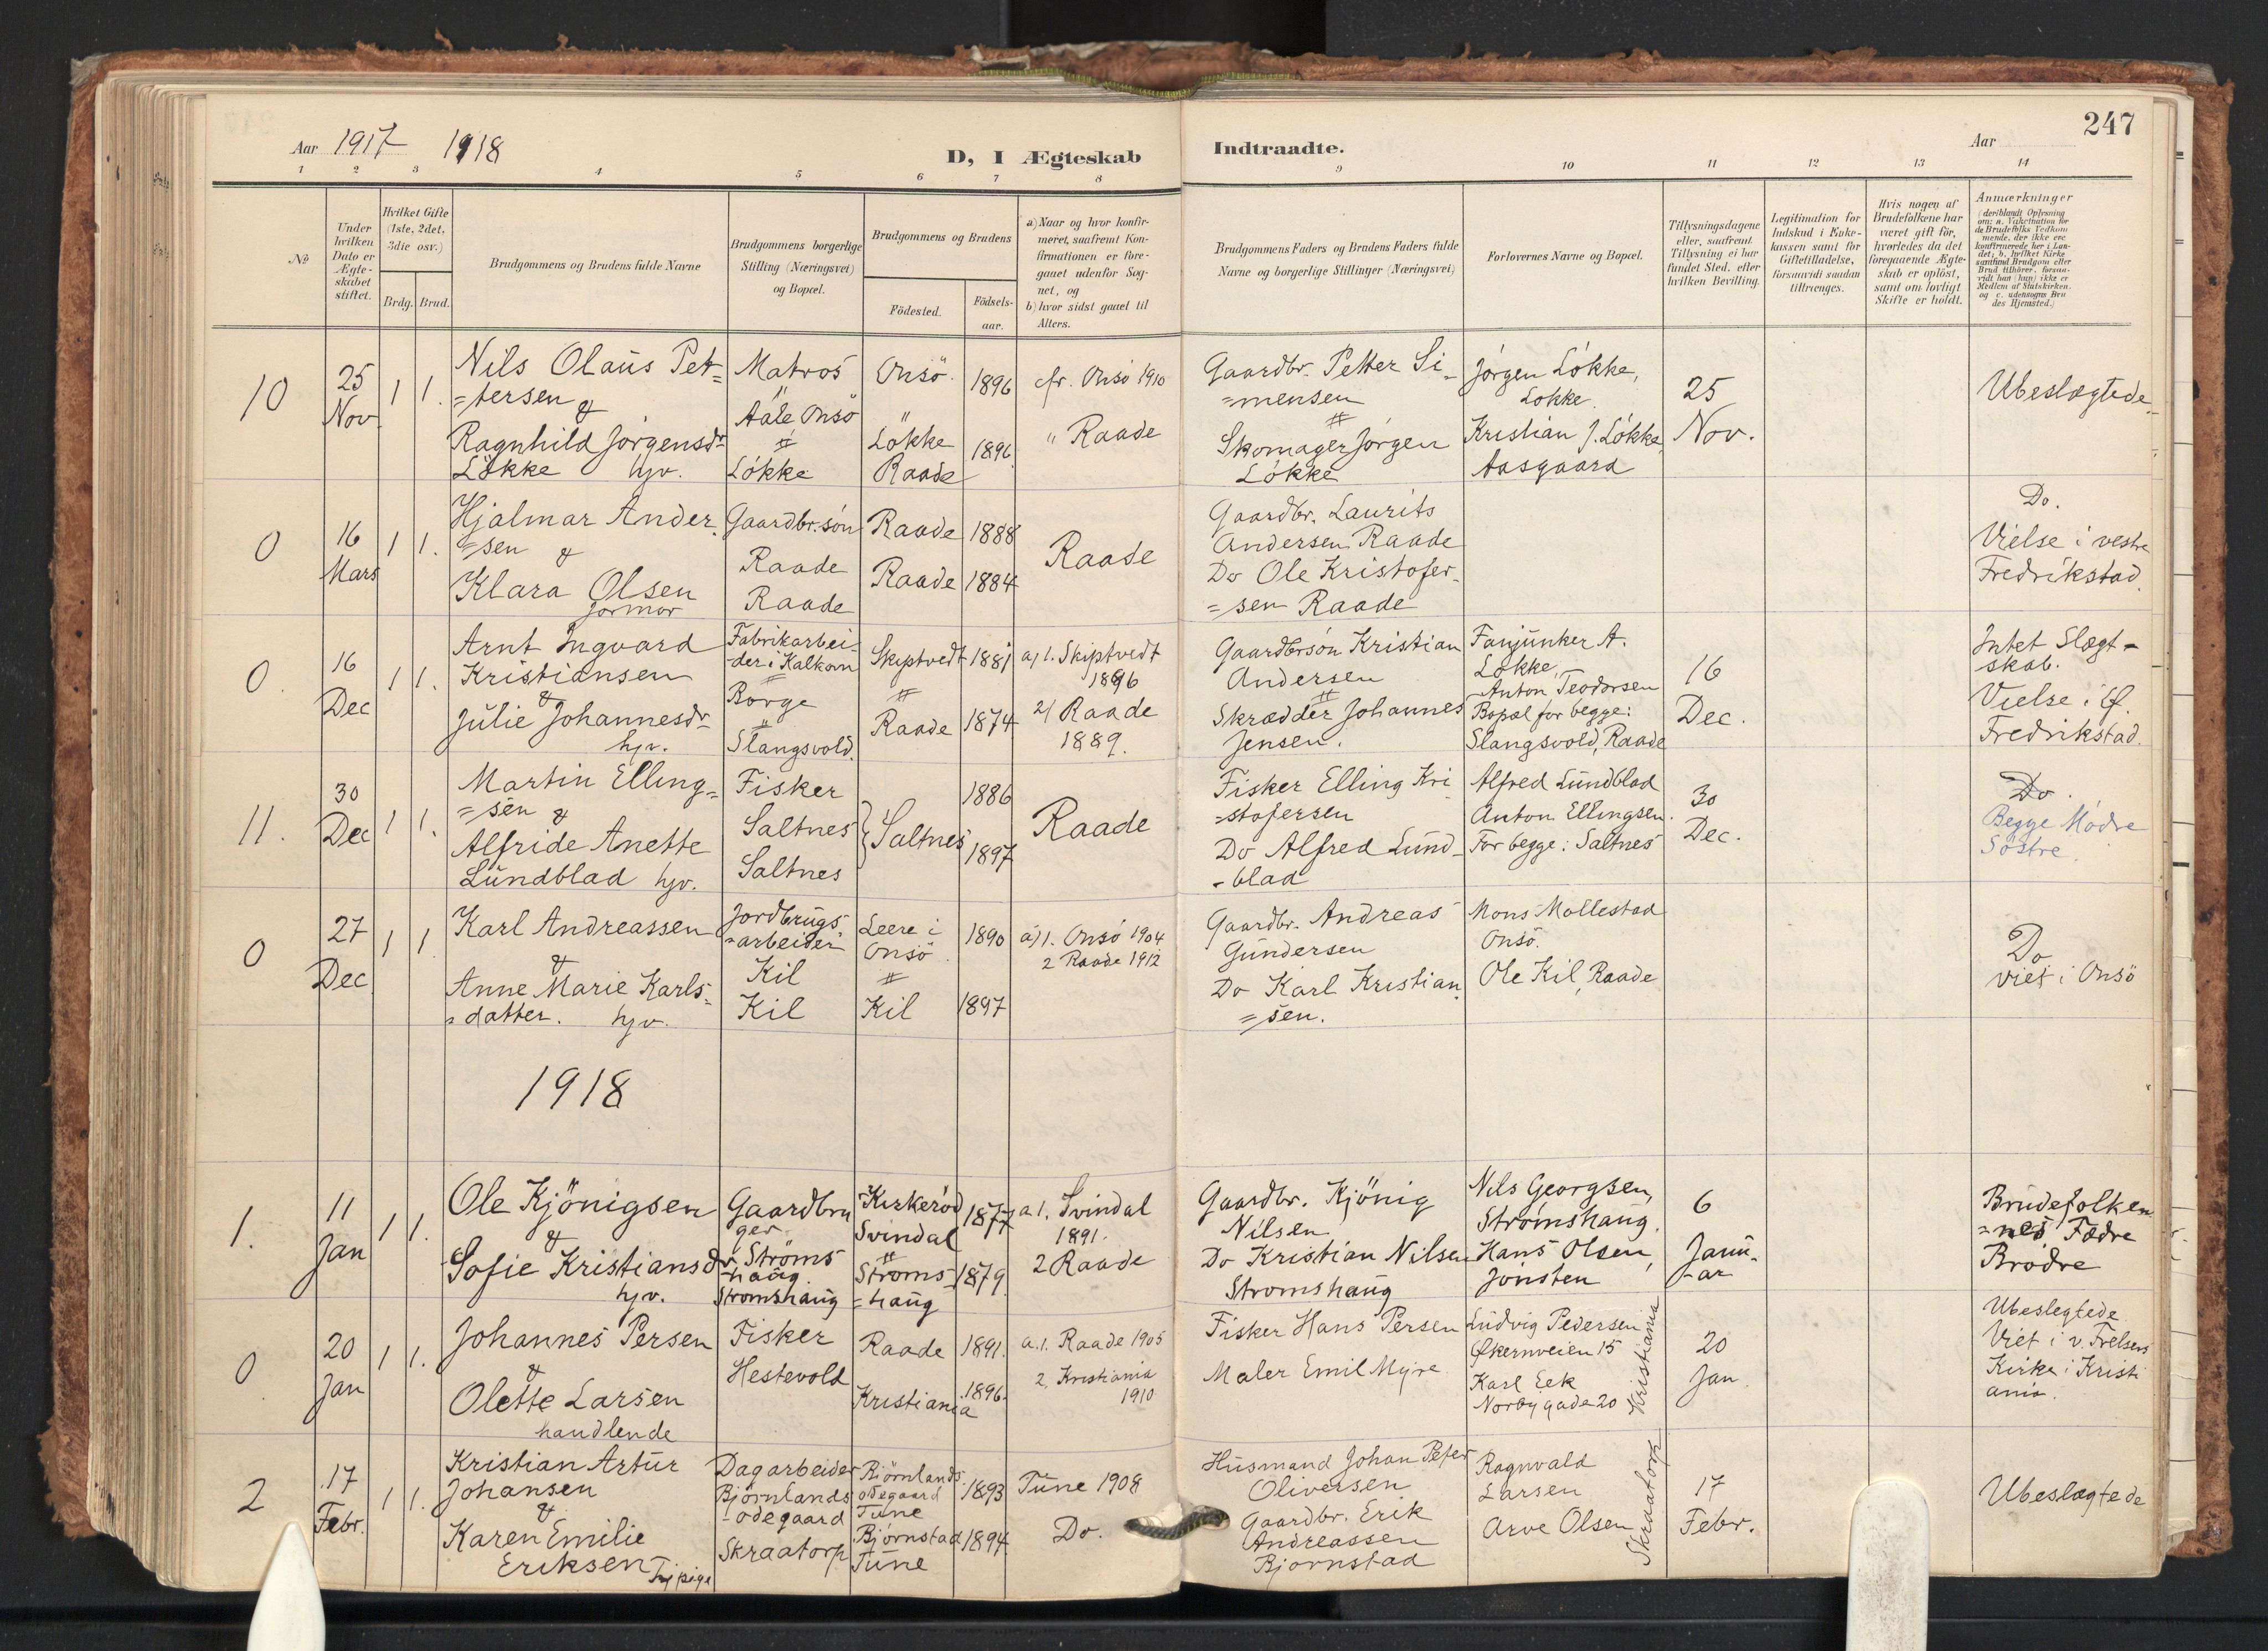 Aar 1917 1918
D, I Ægteskab
Indtraadte.
Aar
247
1 2 3 4 5 6 7 8 9 10 11 12 13 14
No
Under hvilken Dato er Ægte-skabet stiftet.
Hvilket Gifte (1ste, 2det, 3die osv.)
Brdg. Brud.
Brudgommens og Brudens fulde Navne
Brudgommens borgerlige Stilling (Næringsvei) og Bopæl.
Brudgommens og Brudens
Födested.
Födsels-aar.
a) Naar og hvor konfir-meret, saafremt Kon-firmationen er fore-gaaet udenfor Sog-net, og
b) hvor sidst gaaet til Alters.
Brudgommens Faders og Brudens Faders fulde Navne og borgerlige Stillinger (Næringsvei)
Forlovernes Navne og Bopæl.
Tillysningsdagene eller, saafremt Tillysning ei har fundet Sted, efter hvilken Bevilling.
Legitimation for Indskud i Enke-kassen samt for Giftetilladelse, forsaavidt saadan tiltrænges.
Hvis nogen af Brudefolkene har været gift för, hvorledes da det foregaaende Ægte-skab er oplöst, samt om lovligt Skifte er holdt.
Anmærkninger
(deriblandt Oplysning om: a. Vakcination for de Brudefolks Vedkom mende, der ikke ere konfirmerede her i Lan-det; b. hvilket Kirke samfund Brudgom eller Brud tilhörer, forsaa-vidt han (hun) ikke er Medlem af Statskirken, og c. udensogns Bru des Hjemsted.)
10
25
Nov
1 1.
Nils Olaus Pet=
=tersen
&
Ragnhild Jørgensdr
Løkke hjv.
Matros
"
Aale Onsö
"
Løkke
Onsö.
"
Løkke
Raade
1896
1896
cfr. Onsö 1910
" Raade
Gaardbr. Petter Si-
=mensen
"
Skomager Jørgen
Løkke
Jørgen Løkke,
Løkke.
Kristian J. Løkke,
Aasgaard
25
Nov.
Ubeslægtede
0
16
Mars
1 1.
Hjalmar Ander
=sen &
Klara Olsen
jormor
Gaardbr.søn
Raade
Raade
Raade
Raade
1888
1884
Raade
Gaardbr. Laurits
Andersen Raade
Do Ole Kristofer-
=sen Raade
Do.
Vielse i vestre
Fredrikstad
0.
16
Dec
1 1.
Arnt Ingvard
Kristiansen
&
Julie Johannesdr
hjv.
Fabrikarbei-
-der i Kalkorn
"
Borge
"
Slangsvold.
Skiptvedt
"
Raade
1881
1874
a) 1. Skiptvedt
1896
2/ Raade
1889.
Gaardbrsøn Kristian
Andersen
"
Skrædder Johannes
Jensen.
Fanjunker A.
Løkke,
Anton Teodorsen
Bopæl for begge:
Slangsvold, Raade
16
Dec.
Intet Slægt-
skab.
Vielse i Gl.
Fredrikstad.
11.
30
Dec
1 1.
Martin Elling=
=sen &
Alfride Anette
Lundblad hjv.
Fisker
Saltnes
Saltnes
Saltnes
1886
1897
Raade
Fisker Elling Kri
-stofersen
Do Alfred Lund-
-blad
Alfred Lundblad
Anton Ellingsen.
For begge: Saltnes
30
Dec.
Do.
Begge Mødre
Søstre.
0
27
Dec
1 1
Karl Andreassen
&
Anne Marie Karls=
=datter. hjv.
Jordbrugs
=arbeider
Kil
Kil
Leere i
Onsö
"
Kil
1890
1897
a) 1. Onsö 1904
2 Raade 1912
Gaardbr. Andreas
Gundersen
Do Karl Kristian
=sen.
Mons Mallestad
Onsö.
Ole Kil, Raade
Do
Viet i Onsö
1918
1.
11
Jan
1 1.
Ole Kjönigsen
&
Sofie Kristiansdr
hjv.
Gaardbru
ger
Ströms
haug.
Strömshaug
Kirkeröd
Svindal
"
Ströms
=haug
1877
1879
a 1. Svindal
1891.
2 Raade
Gaardbr. Kjönig
Nilsen
Do Kristian Nilsen
Strömshaug
Nils Georgsen,
Strömshaug.
Hans Olsen,
Jonsten
6
Janu-
-ar
Brudefolken
=nes Fædre
Brödre
0
20
Jan
1 1.
Johannes Persen
&
Olette Larsen
handlende
Fisker
Hestevold
Raade
Kristiania
1891.
1896.
a. 1. Raade 1905
2, Kristiania
1910
Fisker Hans Persen
Maler Emil Myre
Ludvig Pedersen
Økernveien 15
Karl Eek
Norbygade 20
Kristiania
20
Jan.
Ubeslegtede
Viet i v. Frelsers
Kirke i Kristi
ania.
2
17
Febr.
1 1.
Kristian Artur
Johansen
&
Karen Emilie
Eriksen Tj pige
Dagarbeider
Bjørnlands
-ødegaard
Skraatorp
Bjørnlands
ødegaard
Tune
Bjørnstad
Tune
1893
1894
Tune 1908
Do.
Husmand Johan Peter
Oliversen
Gaardbr. Erik
Andreassen
Bjørnstad
Ragnvald
Larsen
Arve Olsen
Skraatorp
17
Febr.
Ubeslægtede